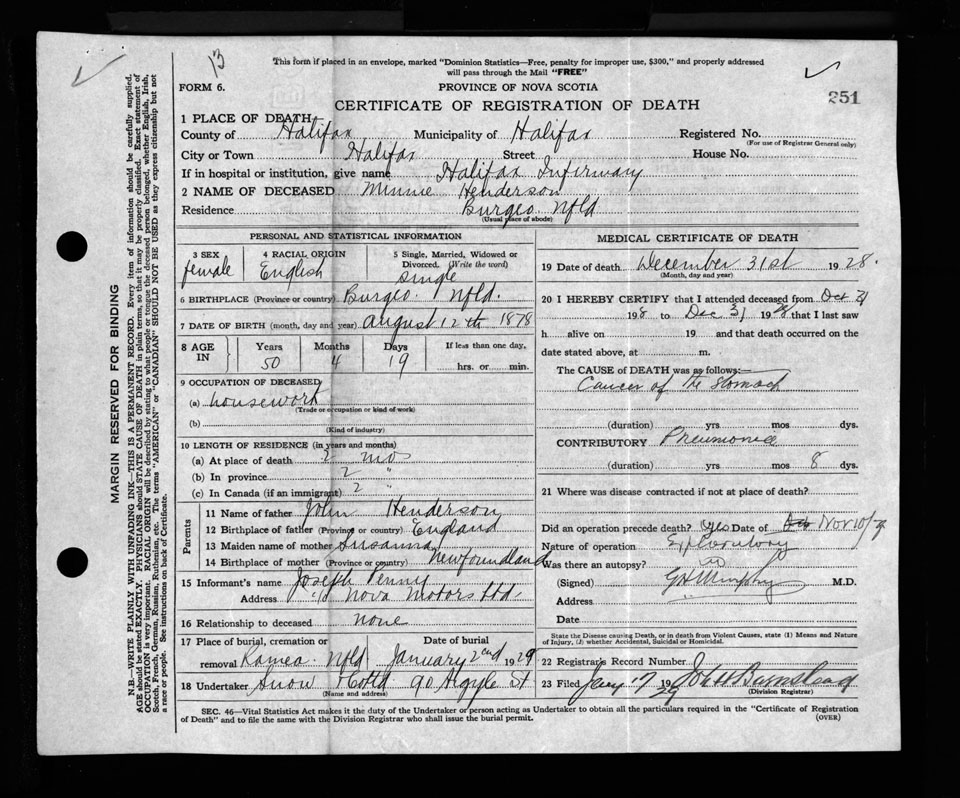 13
This form if placed in an envelope, marked "Dominion Statistics—Free, penalty for improper use, $300," and properly addressed
will pass through the Mail "FREE"
FORM 6.
PROVINCE OF NOVA SCOTIA
251
CERTIFICATE OF REGISTRATION OF DEATH
MARGIN RESERVED FOR BINDING
N.B.—WRITE PLAINLY WITH UNFADING INK—THIS IS A PERMANENT RECORD. Every item of information should be carefully supplied.
AGE should be stated EXACTLY. PHYSICIANS should STATE CAUSE OF DEATH in plain terms, so that it may be properly classified. Exact statement of
OCCUPATION is very important. RACIAL ORIGIN will be described by stating to what people or tongue the deceased person belonged, whether English, Irish,
Scotch, French, German, Russian, Ruthenian, etc. The terms "AMERICAN" or "CANADIAN" SHOULD NOT BE USED as they express citizenship but not
a race or people. See instructions on back of Certificate.
1 PLACE OF DEATH
County of Halifax Municipality of Halifax Registered No.
(For use of Registrar General only)
City or Town Halifax Street House No.
If in hospital or institution, give name Halifax Infirmary
2 NAME OF DECEASED Minnie Henderson
Residence Burgeo Nfld
(Usual place of abode)
PERSONAL AND STATISTICAL INFORMATION
3 SEX 4 RACIAL ORIGIN 5 Single, Married, Widowed or
Divorced. (Write the word)
female English single
6 BIRTHPLACE (Province or country) Burgeo. Nfld.
7 DATE OF BIRTH (month, day and year) August 12th 1878
8 AGE IN Years Months Days If less than one day,
50 4 19 hrs. or min.
9 OCCUPATION OF DECEASED
(a) housework
(Trade or occupation or kind of work)
(b)
(Kind of industry)
10 LENGTH OF RESIDENCE (in years and months)
(a) At place of death 2 mos
(b) In province 2 "
(c) In Canada (if an immigrant) 2 "
Parents
11 Name of father John Henderson
12 Birthplace of father (Province or country) England
13 Maiden name of mother Susanna
14 Birthplace of mother (Province or country) Newfoundland
15 Informant's name Joseph Penny
Address c/o Nova Motors Ltd
16 Relationship to deceased none
17 Place of burial, cremation or Date of burial
removal Ramea. Nfld January 2nd 1929
18 Undertaker Snow & Co Ltd 90 Argyle St
(Name and address)
MEDICAL CERTIFICATE OF DEATH
19 Date of death December 31st 1928.
(Month, day and year)
20 I HEREBY CERTIFY that I attended deceased from Oct 31
198 to Dec 31 1928 that I last saw
h alive on 19 and that death occurred on
date stated above, at m.
The CAUSE of DEATH was as follows:—
Cancer of the stomach
(duration) yrs mos dys.
CONTRIBUTORY Pneumonia
(duration) yrs mos 8 dys.
21 Where was disease contracted if not at place of death?
Did an operation precede death? yes Date of Nov 10/28
Nature of operation Exploratory
Was there an autopsy? no
(Signed) G H Murphy M.D.
Address
Date
State the Disease causing Death, or in death from Violent Causes, state (I) Means and Nature
of Injury, (2) whether Accidental, Suicidal or Homicidal.
22 Registrar's Record Number
23 Filed Jany 17 1929
(Division Registrar)
SEC. 46—Vital Statistics Act makes it the duty of the Undertaker or person acting as Undertaker to obtain all the particulars required in the "Certificate of Registration
of Death" and to file the same with the Division Registrar who shall issue the burial permit.
(OVER)